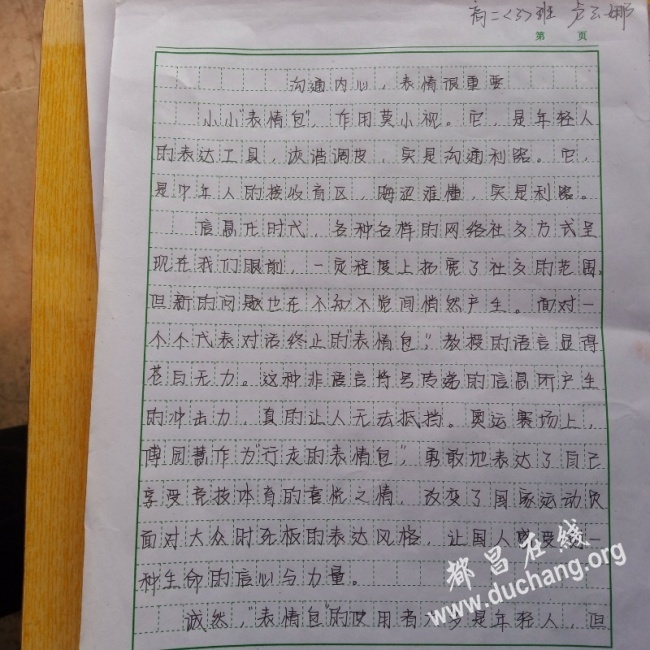 高二<3>班 卢云娜
第 页
沟通内心，表情很重要
小小"表情包"，作用莫小视。它，是年轻人
的表达工具，诙谐调皮，实是沟通利器。它，
是中年人的接收盲区，晦涩难懂，实是利器。
信息化时代，各种各样的网络社交方式呈
现在我们眼前，一定程度上拓宽了社交的范围。
但新的问题也在不知不觉间悄然产生。面对一
个个代表对话终止的"表情包"，教授的语言显得
苍白无力。这种非语言符号传递的信息所产生
的冲击力，真的让人无法抵挡。奥运赛场上，
傅园慧作为"行走的表情包"，勇敢地表达了自己
享受竞技体育的喜悦之情，改变了国家运动员
面对大众时死板的表达风格，让国人感受到一
种生命的信心与力量。
诚然，"表情包"的使用者大多是年轻人，但
都昌在线
www.duchang.org